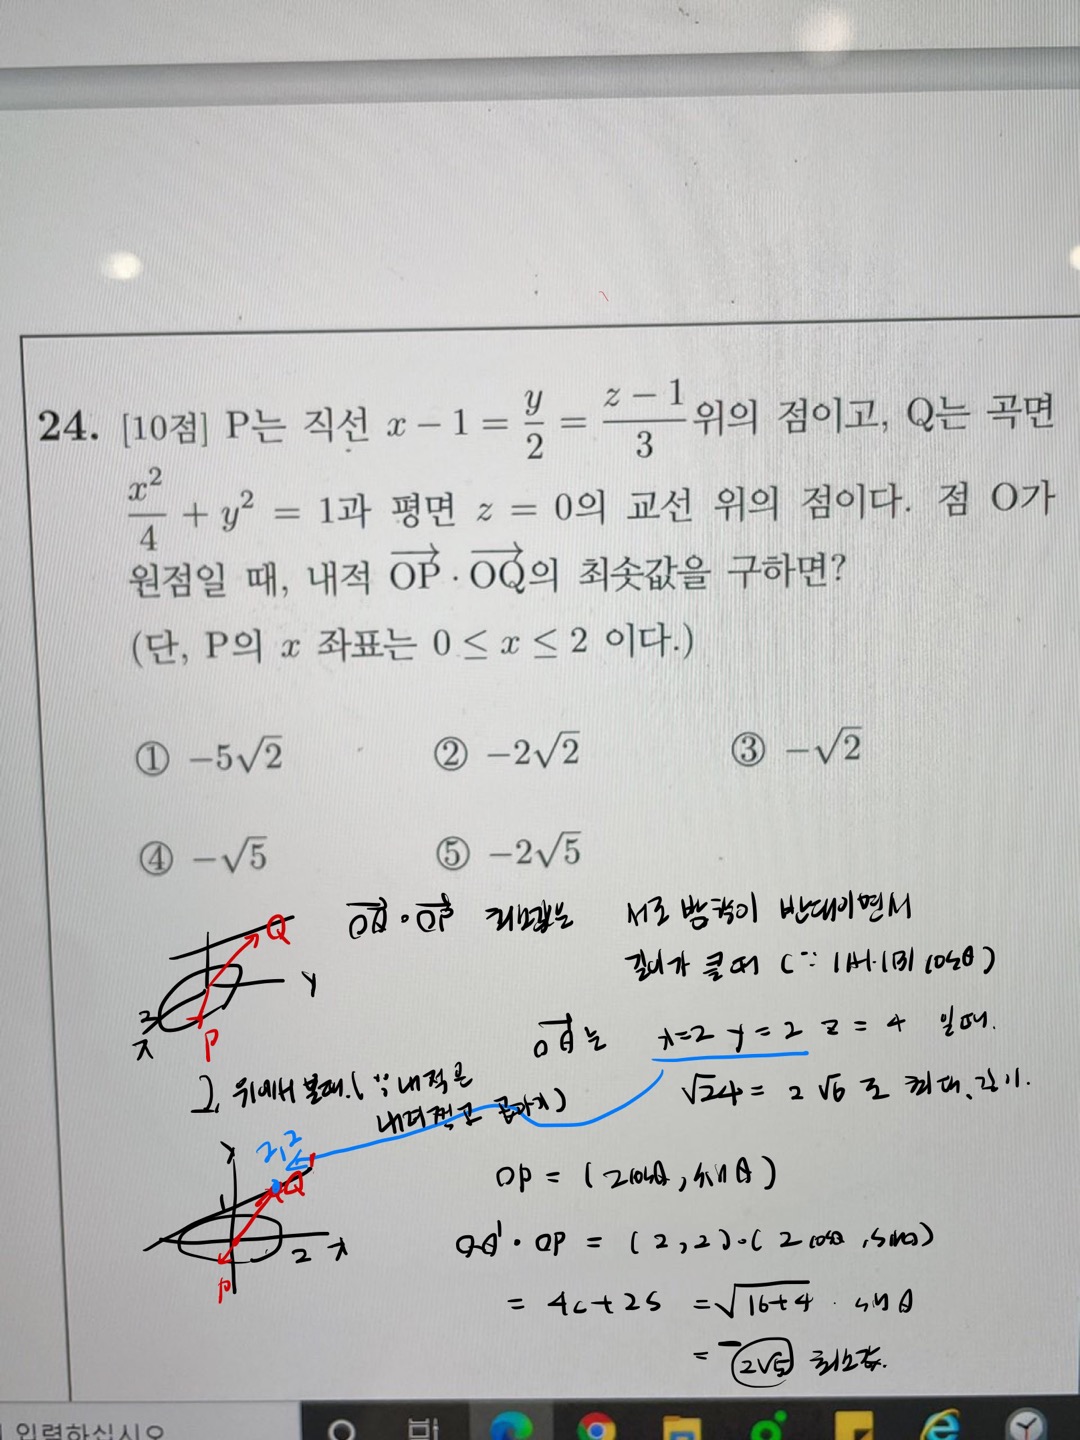 24. [10점] P는 직선 x − 1 = y/2 = (z − 1)/3 위의 점이고, Q는 곡면
x²/4 + y² = 1과 평면 z = 0의 교선 위의 점이다. 점 O가
원점일 때, 내적 OP · OQ의 최솟값을 구하면?
(단, P의 x 좌표는 0 ≤ x ≤ 2 이다.)
① −5√2 ② −2√2 ③ −√2
④ −√5 ⑤ −2√5
OQ · OP 최소값은 서로 방향이 반대이면서
길이가 클 때 (∵ |A|·|B| cosθ)
Q
y
2
x
P
OQ는 x=2 y=2 z=4 일때.
√24 = 2√6 로 최대 길이.
위에서 볼때. (∵ 내적은
y
2,2
Q'
1
2 x
P
OP = (2cosθ, sinθ)
OQ' · OP = (2,2)·(2cosθ, sinθ)
= 4c+2s = √16+4 · sinθ
= −2√5 최소값.
입력하십시오